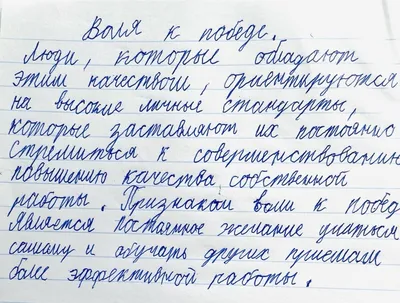 Воля к победе.
Люди, которые обладают
этим качеством, ориентируются
на высокие личные стандарты,
которые заставляют их постоянно
стремиться к совершенствованию
повышению качества собственной
работы. Признаком воли к побед
является постоянное желание учиться
самому и обучать других приемам
более эффективной работы.